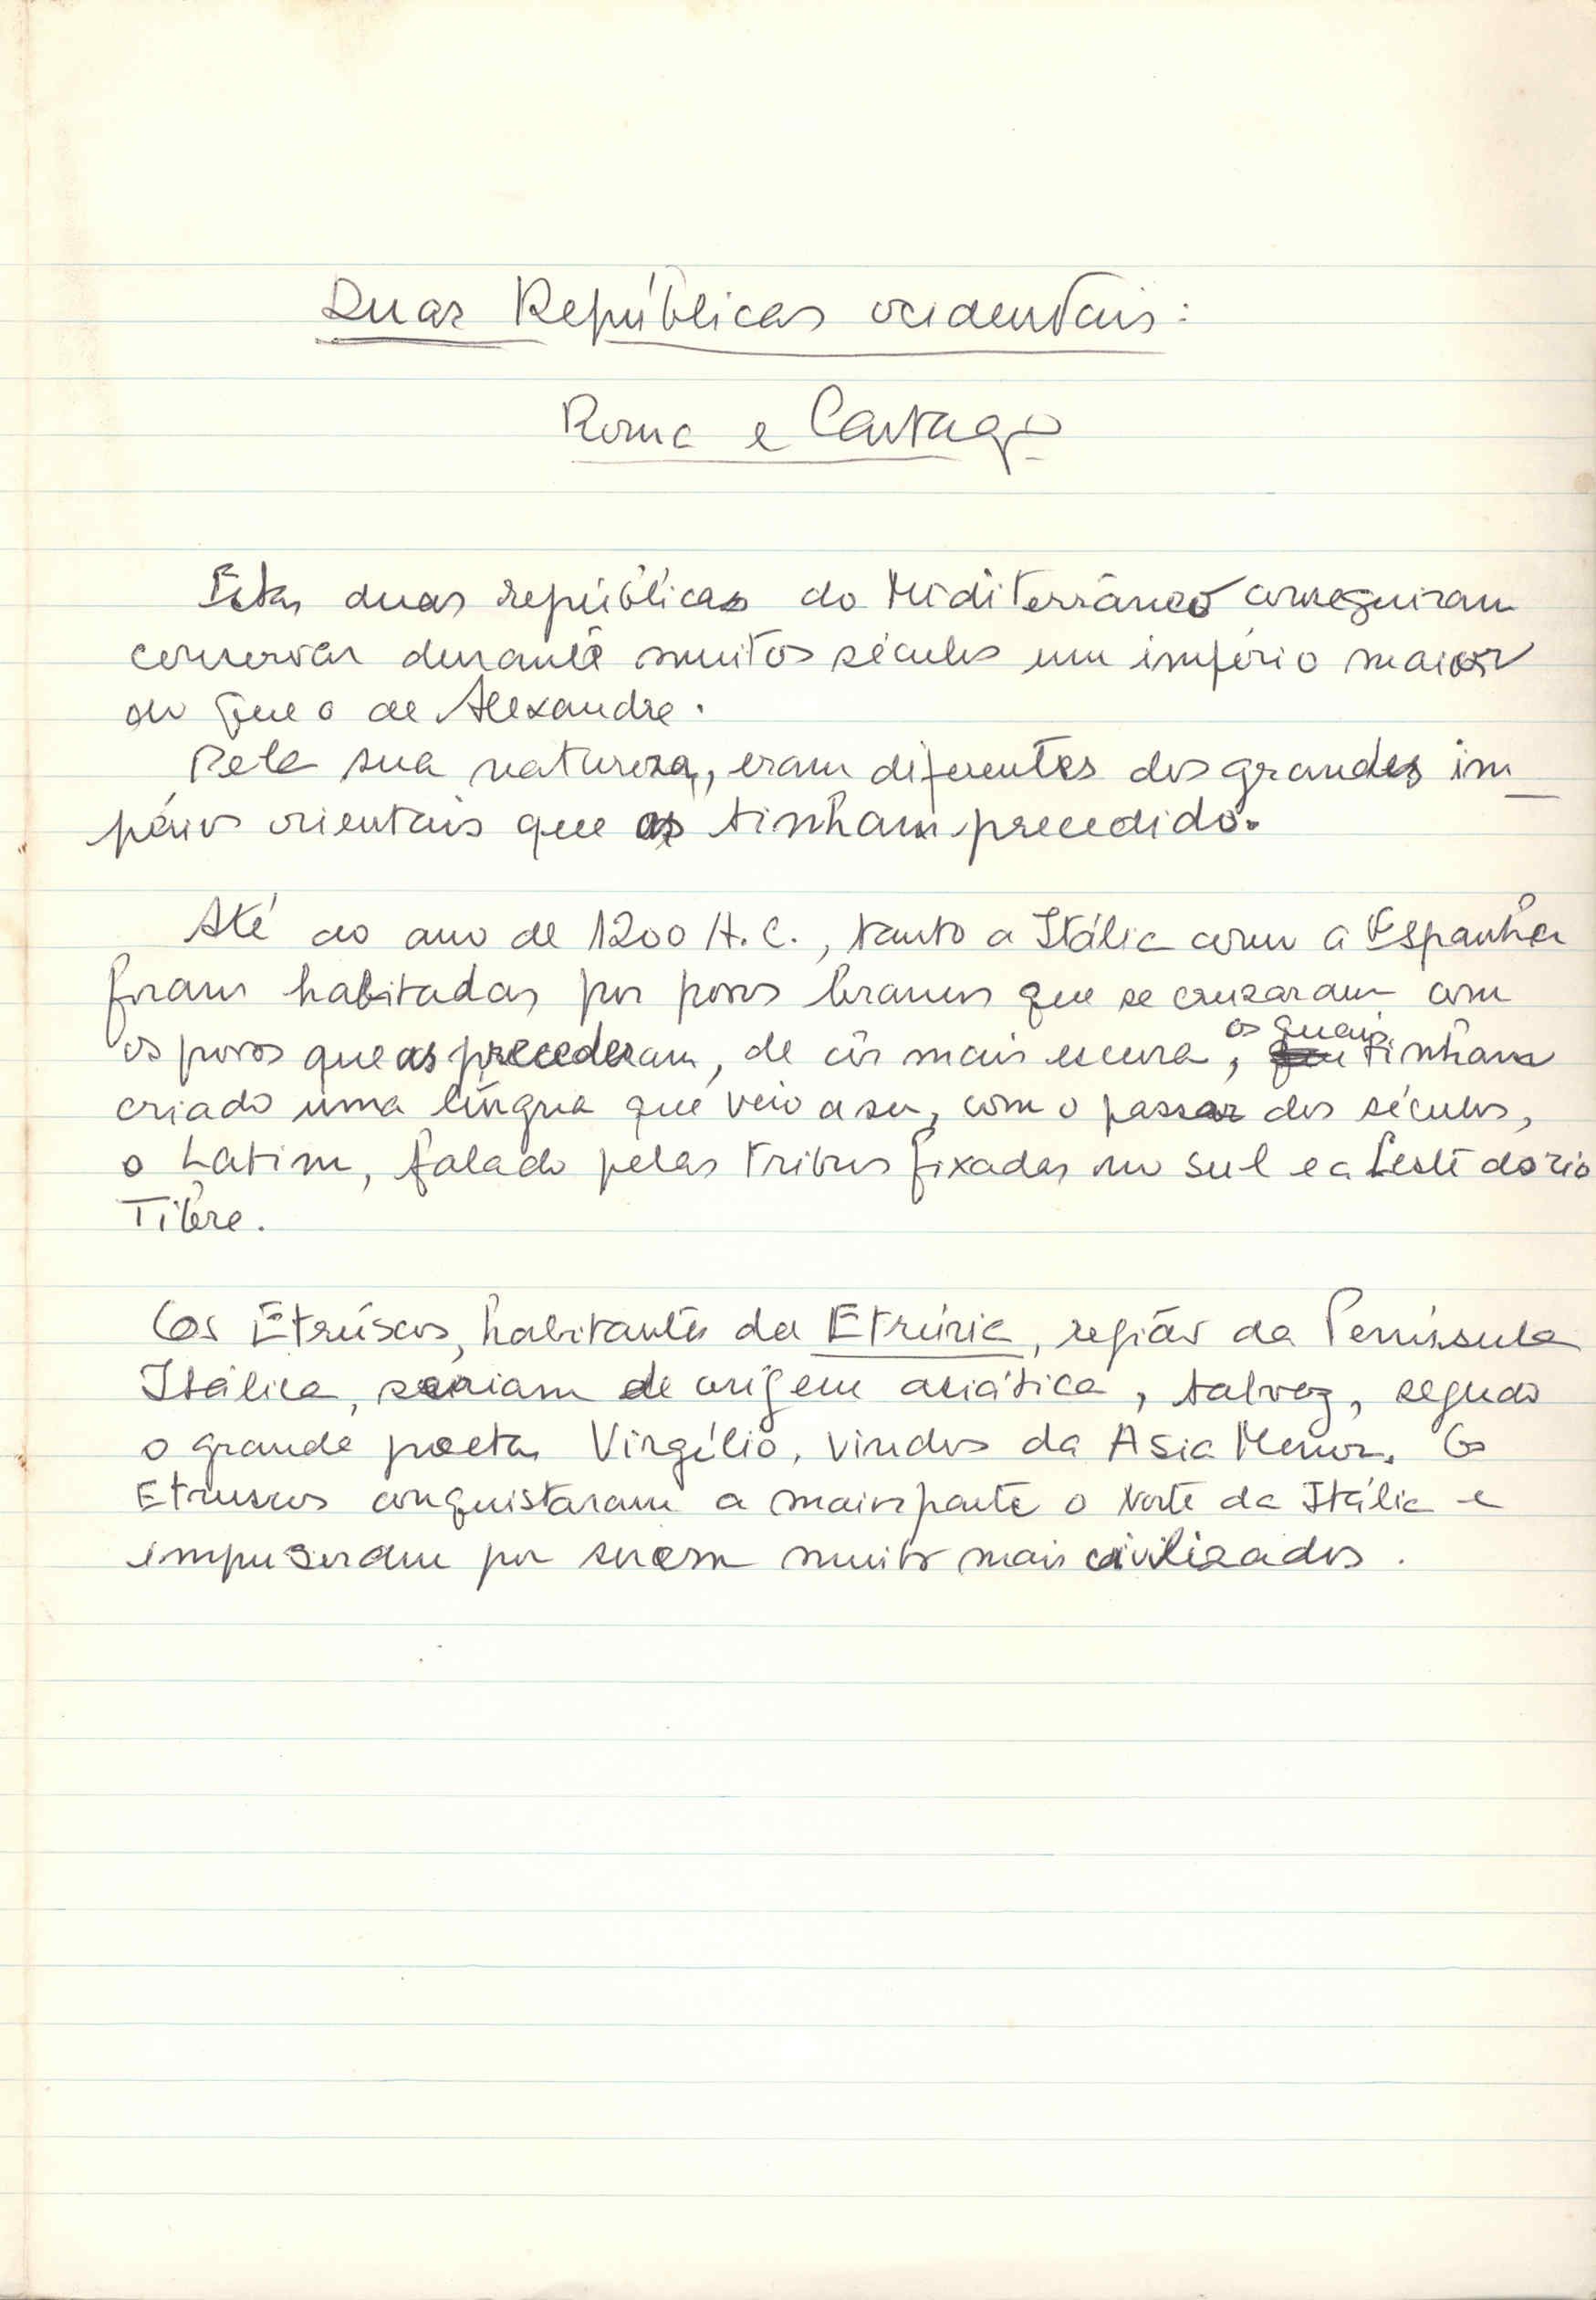 Duas Repúblicas ocidentais:
Roma e Cartago
Estas duas repúblicas do Miditerrâneo conseguiram
conservar durante muitos séculos um império maior
do que o de Alexandre.
Pela sua natureza, eram diferentes dos grandes im
périos orientais que as tinham precedido.
Até ao ano de 1200 A.C., tanto a Itália como a Espanha
foram habitadas por povos brancos que se cruzaram com
os povos que as precederam, de côr mais escura, os quais tinham
criado uma língua que veio a ser, com o passar dos séculos,
o Latim, falado pelas tribus fixadas no sul e a Leste do rio
Tibre.
Os Etrúscos, habitantes da Etrúria, região da Península
Itálica, seriam de origem asiática, talvez, segudo
o grande poeta Virgílio, vindos da Asia Menor. Os
Etruscos conquistaram a maior parte o Norte da Itália e
impuseram por serem muito mais civilizados.